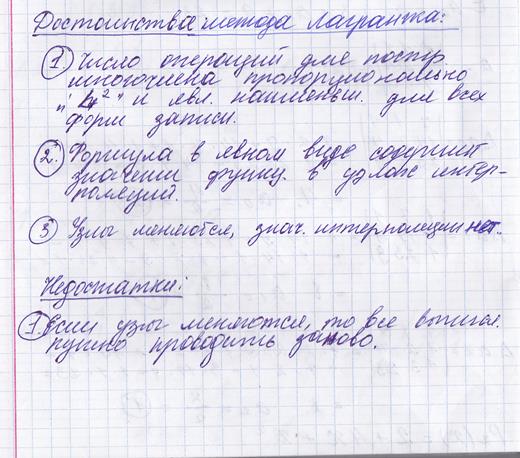 Достоинства метода Лагранжа:
1) Число операций для постр.
многочлена пропорционально
"n²" и явл. наименьш. для всех
форм записи.
2. Формула в явном виде содержит
значении функц. в узлах интер-
поляций.
3 Узлы меняются, знач. интерполяции нет.
Недостатки:
1. Если узлы меняются, то все вычисл.
нужно проводить заново.